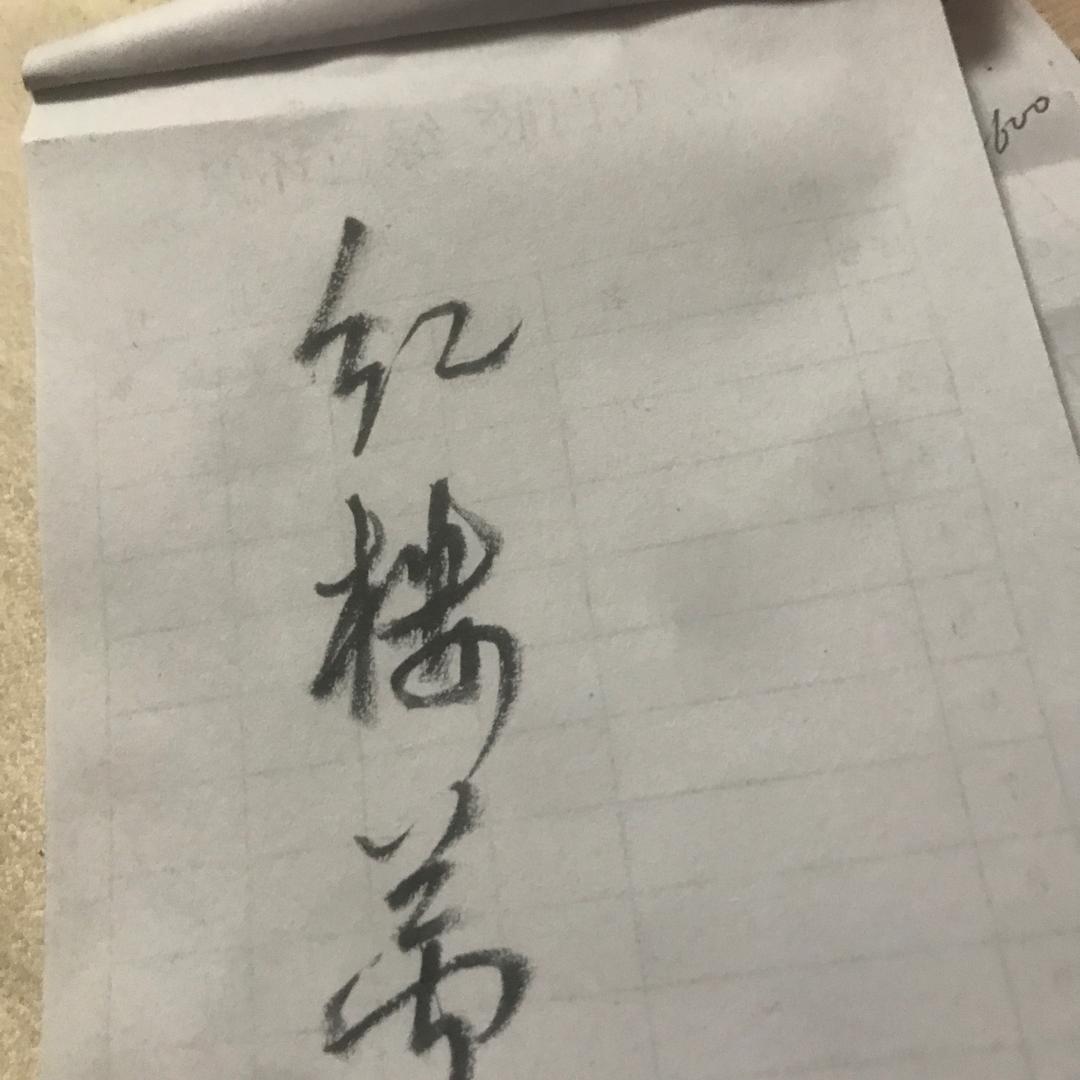 600
红
楼
梦